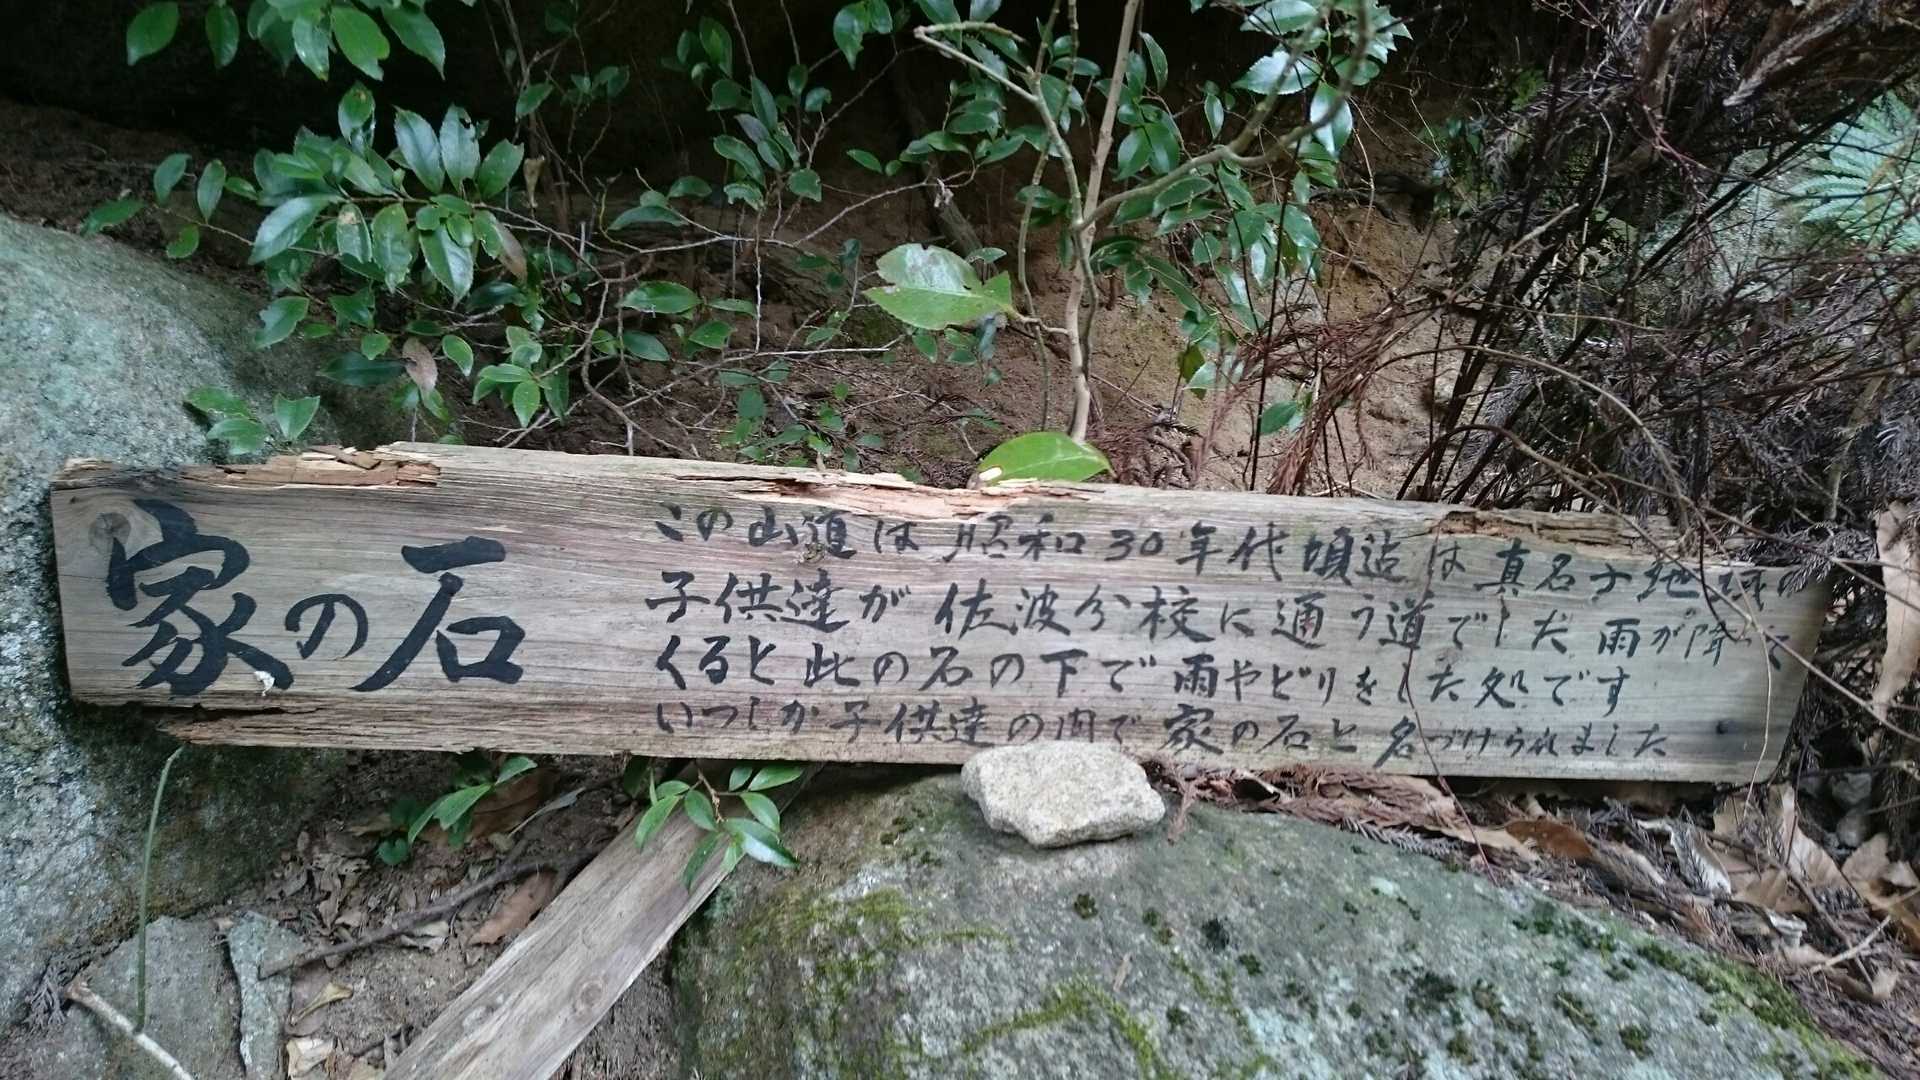 家の石
この山道は昭和30年代頃迠は真名子地域の
子供達が佐波分校に通う道でした雨が降って
くると此の石の下で雨やどりをした処です
いつしか子供達の内で家の石と名づけられました